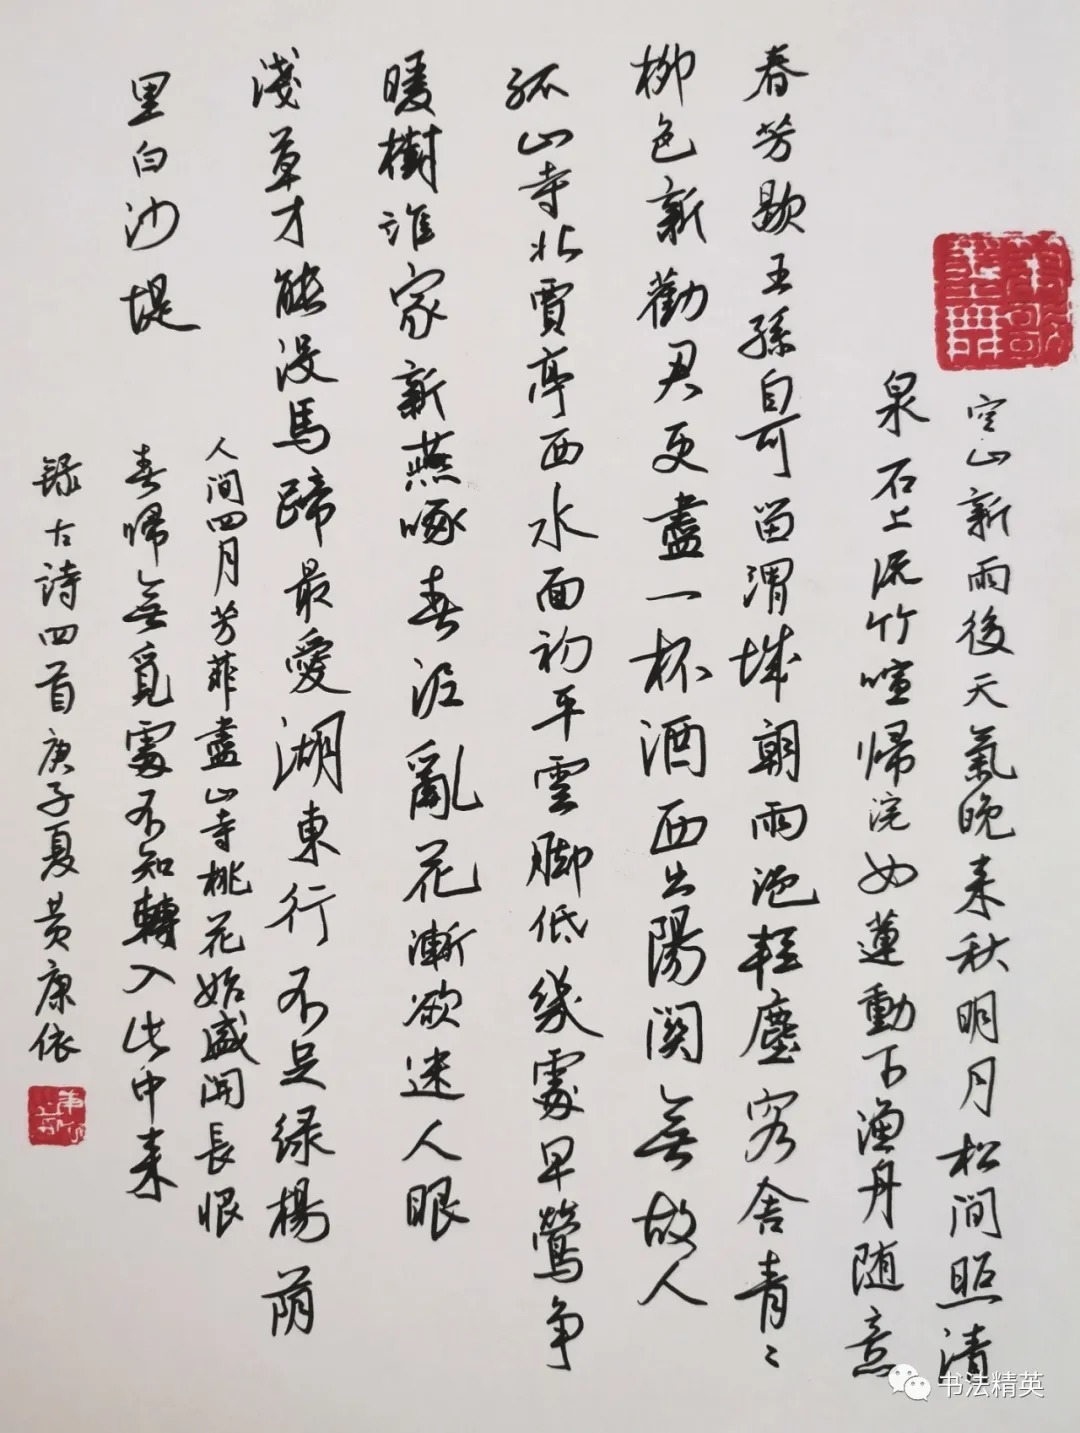 空山新雨後天氣晚来秋明月松间照清
泉石上流竹喧歸浣女蓮動下漁舟随意
春芳歇王孫自可留渭城朝雨浥輕塵客舍青〻
柳色新勸君更盡一杯酒西出陽関無故人
孤山寺北賈亭西水面初平雲脚低幾處早鶯争
暖樹誰家新燕啄春泥亂花漸欲迷人眼
淺草才能没馬蹄最愛湖東行不足绿楊荫
里白沙堤
人间四月芳菲盡山寺桃花始盛開長恨
春歸無覓處不知轉入此中来
録古詩四首庚子夏黄康依
书法精英